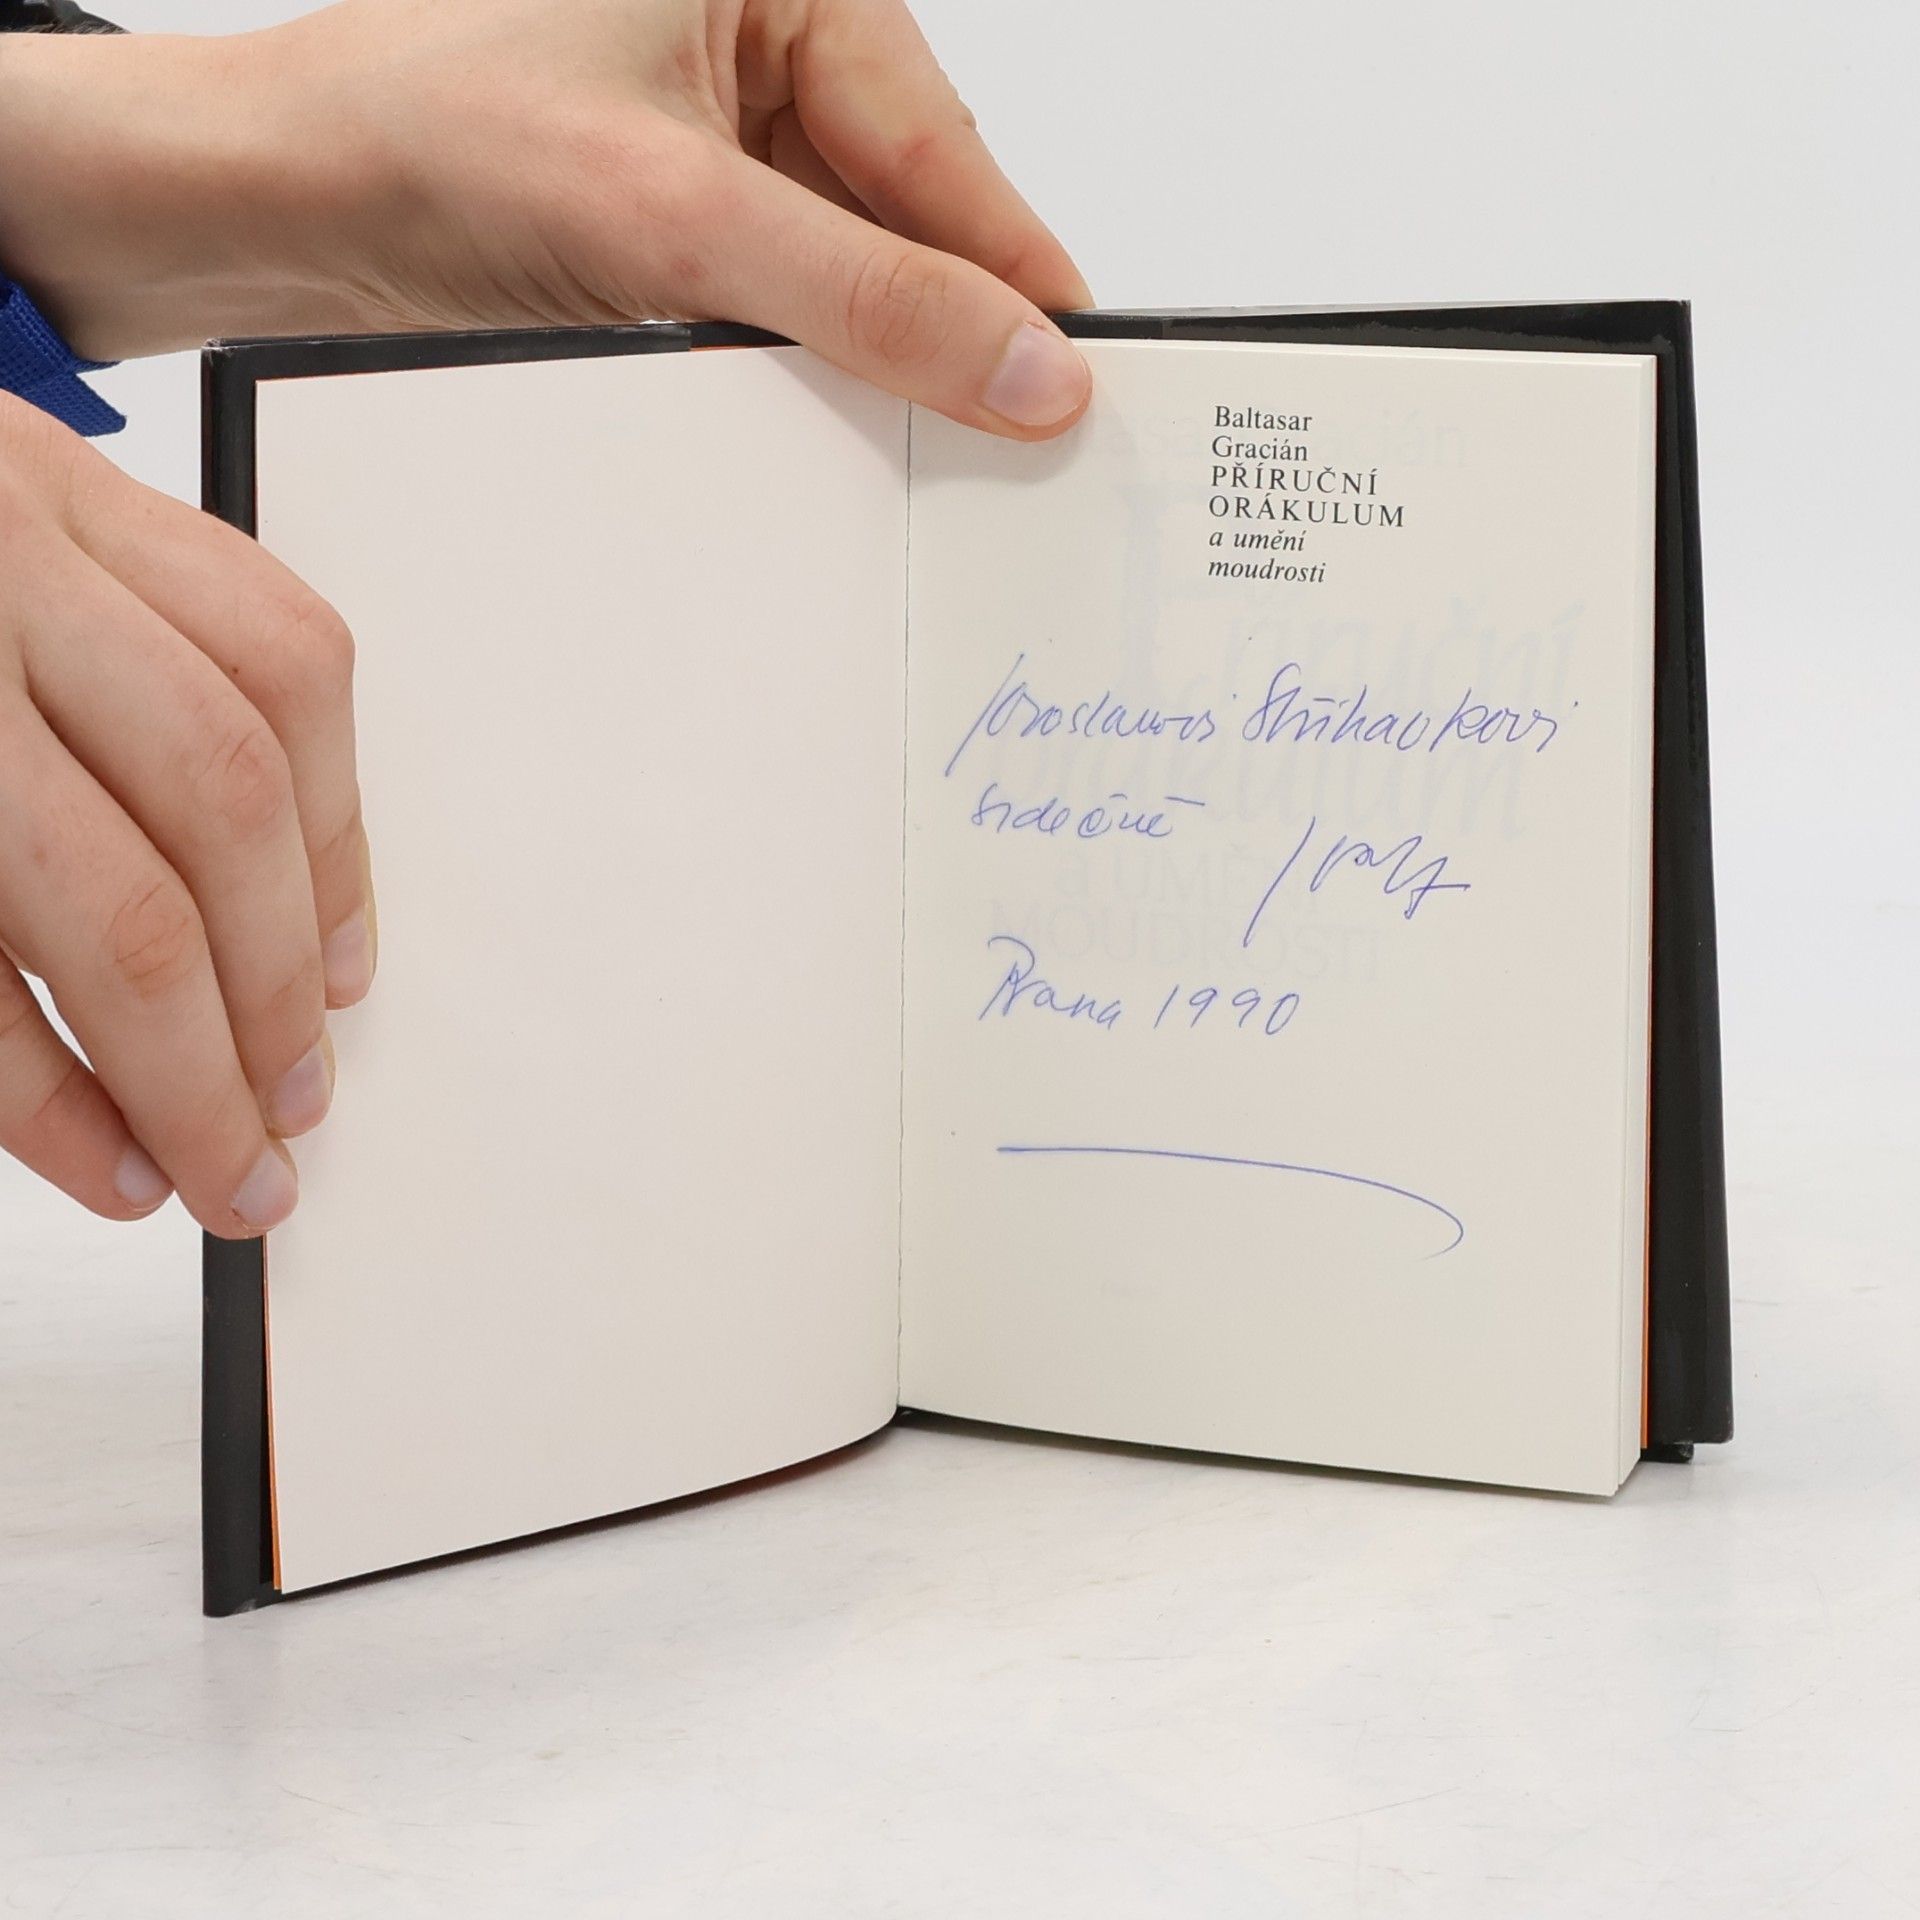 Baltasar
Gracián
PŘÍRUČNÍ
ORÁKULUM
a umění
moudrosti
Jaroslavovi Střihavkovi
srdečně
Praha 1990